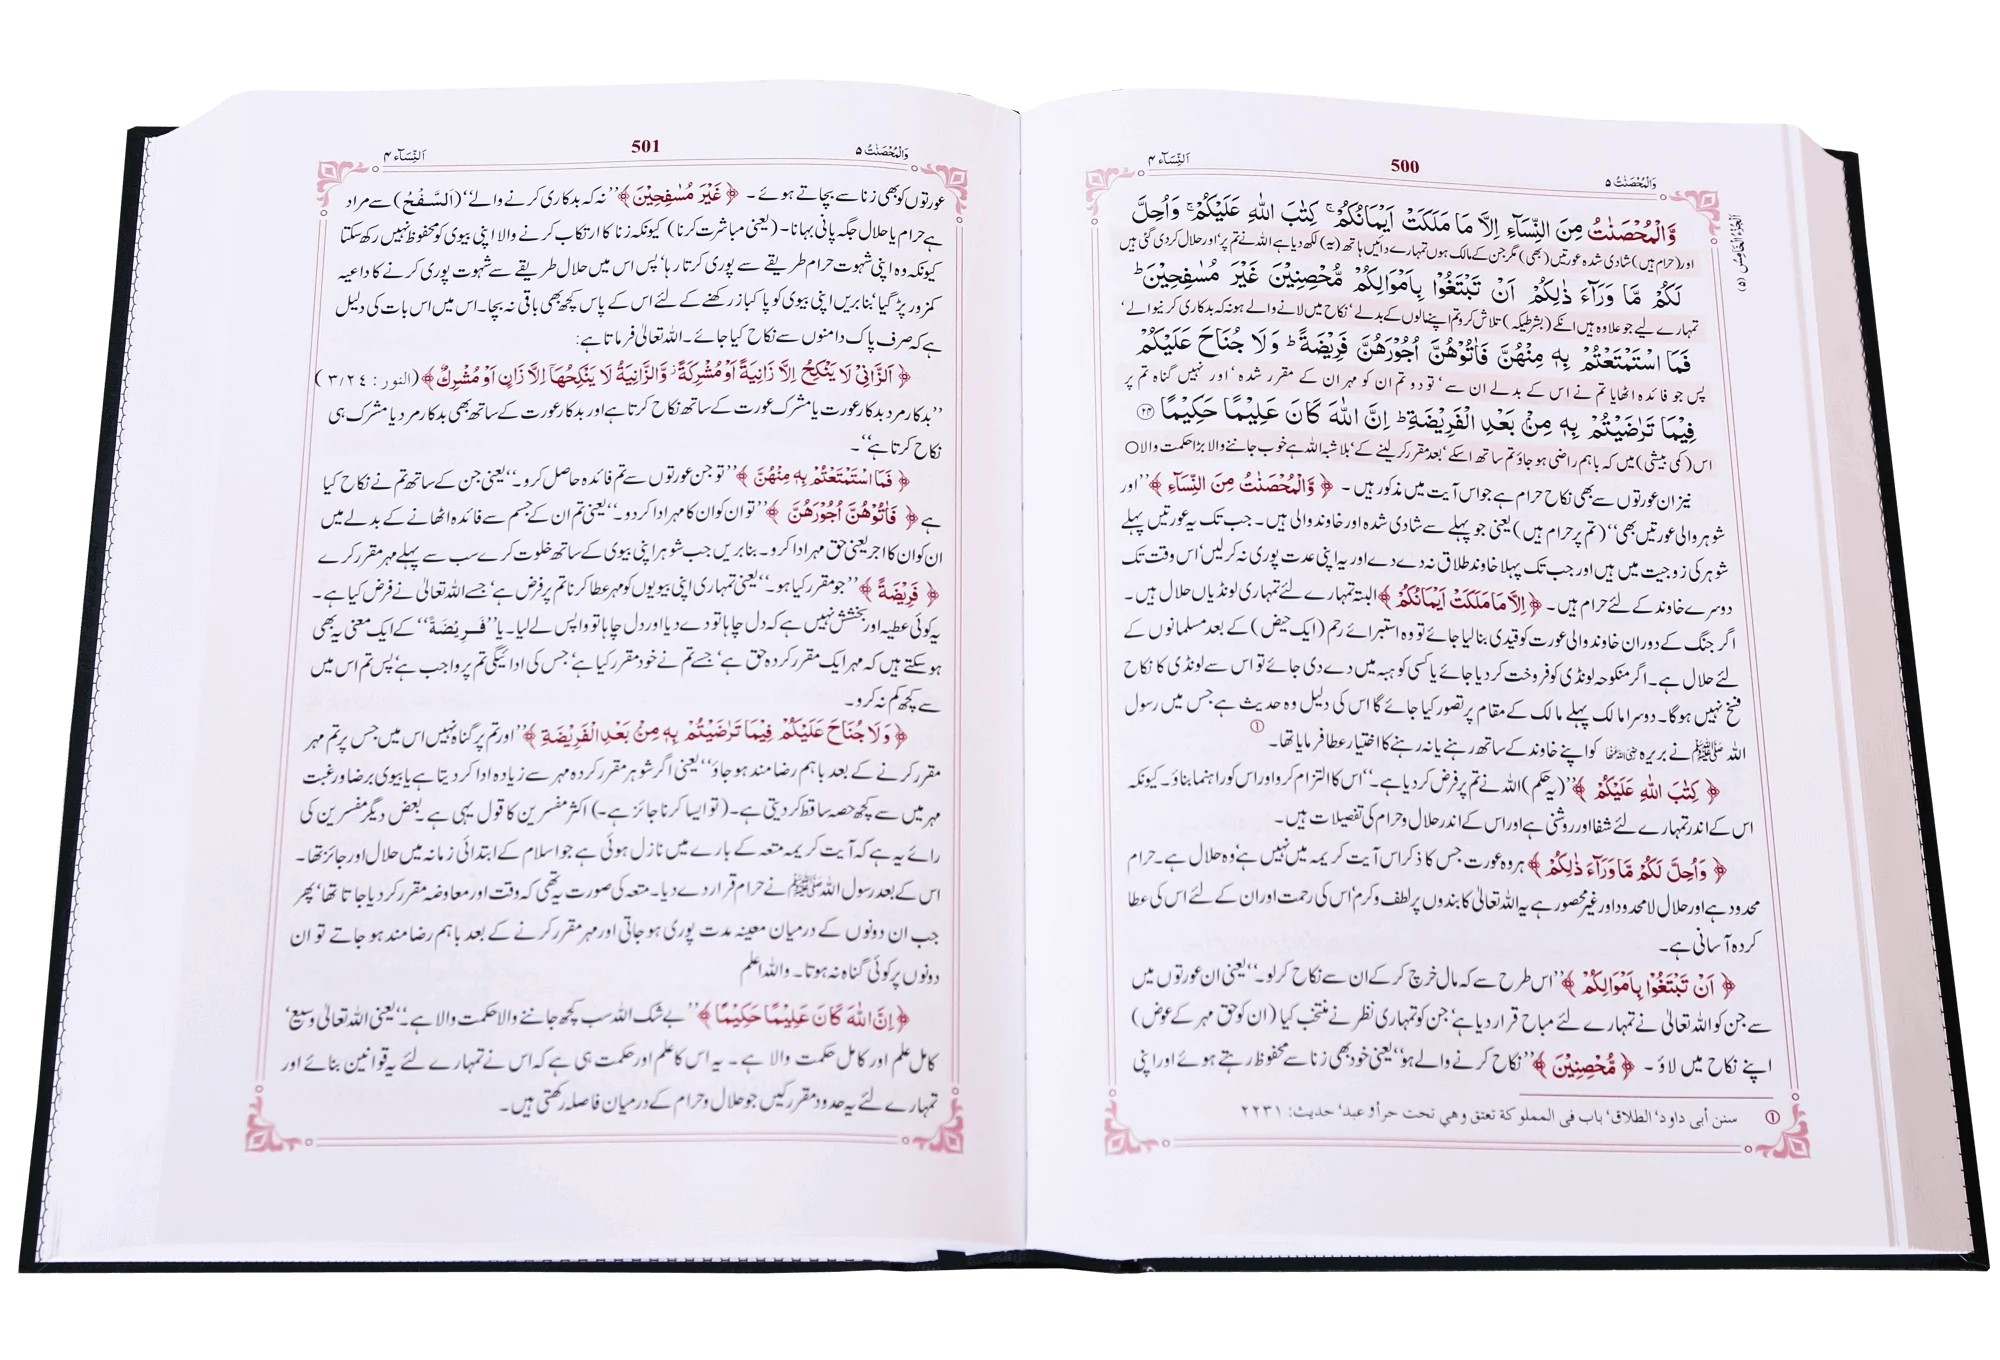 اَلنِّسَآء ۴
500
وَالْمُحْصَنٰتُ ۵
اَلْجُزْءُ الْخَامِسُ (۵)
وَّالْمُحْصَنٰتُ مِنَ النِّسَآءِ اِلَّا مَا مَلَكَتْ اَيْمَانُكُمْ ۚ كِتٰبَ اللّٰهِ عَلَيْكُمْ ۚ وَاُحِلَّ
اور (حرام ہیں) شادی شدہ عورتیں (بھی) مگر جن کے مالک ہوں تمہارے دائیں ہاتھ (یہ) لکھ دیا ہے اللہ نے تم پر‘ اور حلال کردی گئی ہیں
لَكُمْ مَّا وَرَآءَ ذٰلِكُمْ اَنْ تَبْتَغُوْا بِاَمْوَالِكُمْ مُّحْصِنِيْنَ غَيْرَ مُسٰفِحِيْنَ ؕ
تمہارے لیے جو علاوہ ہیں انکے (بشرطیکہ) تلاش کرو تم اپنے مالوں کے بدلے‘ نکاح میں لانے والے ہو نہ کہ بدکاری کرنیوالے‘
فَمَا اسْتَمْتَعْتُمْ بِهٖ مِنْهُنَّ فَاٰتُوْهُنَّ اُجُوْرَهُنَّ فَرِيْضَةً ؕ وَلَا جُنَاحَ عَلَيْكُمْ
پس جو فائدہ اٹھایا تم نے اس کے بدلے ان سے‘ تو دو تم ان کو مہر ان کے مقرر شدہ‘ اور نہیں گناہ تم پر
فِيْمَا تَرٰضَيْتُمْ بِهٖ مِنْۢ بَعْدِ الْفَرِيْضَةِ ؕ اِنَّ اللّٰهَ كَانَ عَلِيْمًا حَكِيْمًا ۲۴
اس (کمی بیشی) میں کہ باہم راضی ہو جاؤ تم ساتھ اسکے‘ بعد مقرر کرلینے کے‘ بلا شبہ اللہ ہے خوب جاننے والا بڑا حکمت والا○
نیز ان عورتوں سے بھی نکاح حرام ہے جو اس آیت میں مذکور ہیں۔ ﴿وَّالْمُحْصَنٰتُ مِنَ النِّسَآءِ﴾ ’’اور
شوہر والی عورتیں بھی‘‘ (تم پر حرام ہیں) یعنی جو پہلے سے شادی شدہ اور خاوند والی ہیں۔ جب تک یہ عورتیں پہلے
شوہر کی زوجیت میں ہیں اور جب تک پہلا خاوند طلاق نہ دے دے اور یہ اپنی عدت پوری نہ کر لیں‘ اس وقت تک
دوسرے خاوند کے لئے حرام ہیں۔ ﴿اِلَّا مَا مَلَكَتْ اَيْمَانُكُمْ﴾ البتہ تمہارے لئے تمہاری لونڈیاں حلال ہیں۔
اگر جنگ کے دوران خاوند والی عورت کو قیدی بنالیا جائے تو وہ استبرائے رحم (ایک حیض) کے بعد مسلمانوں کے
لئے حلال ہے۔ اگر منکوحہ لونڈی کو فروخت کر دیا جائے یا کسی کو ہبہ میں دے دی جائے تو اس سے لونڈی کا نکاح
فسخ نہیں ہوگا۔ دوسرا مالک پہلے مالک کے مقام پر تصور کیا جائے گا اس کی دلیل وہ حدیث ہے جس میں رسول
اللہ ﷺ نے بریرہ رضی اللہ عنہا کو اپنے خاوند کے ساتھ رہنے یا نہ رہنے کا اختیار عطا فرمایا تھا۔ ①
﴿كِتٰبَ اللّٰهِ عَلَيْكُمْ﴾ ’’(یہ حکم) اللہ نے تم پر فرض کر دیا ہے۔‘‘ اس کا التزام کرو اور اس کو راہنما بناؤ۔ کیونکہ
اس کے اندر تمہارے لئے شفا اور روشنی ہے اور اس کے اندر حلال و حرام کی تفصیلات ہیں۔
﴿وَاُحِلَّ لَكُمْ مَّا وَرَآءَ ذٰلِكُمْ﴾ ہر وہ عورت جس کا ذکر اس آیت کریمہ میں نہیں ہے‘ وہ حلال ہے۔ حرام
محدود ہے اور حلال لامحدود اور غیر محصور ہے یہ اللہ تعالیٰ کا بندوں پر لطف و کرم‘ اس کی رحمت اور ان کے لئے اس کی عطا
کردہ آسانی ہے۔
﴿اَنْ تَبْتَغُوْا بِاَمْوَالِكُمْ﴾ ’’اس طرح سے کہ مال خرچ کر کے ان سے نکاح کرلو۔‘‘ یعنی ان عورتوں میں
سے جن کو اللہ تعالیٰ نے تمہارے لئے مباح قرار دیا ہے‘ جن کو تمہاری نظر نے منتخب کیا (ان کو حق مہر کے عوض)
اپنے نکاح میں لاؤ۔ ﴿مُّحْصِنِيْنَ﴾ ’’نکاح کرنے والے ہو‘‘ یعنی خود بھی زنا سے محفوظ رہتے ہوئے اور اپنی
① سنن أبی داود‘ الطلاق‘ باب فی المملوكة تعتق وهي تحت حر أو عبد‘ حديث: ۲۲۳۱
اَلنِّسَآء ۴
501
وَالْمُحْصَنٰتُ ۵
عورتوں کو بھی زنا سے بچاتے ہوئے۔ ﴿غَيْرَ مُسٰفِحِيْنَ﴾ ’’نہ کہ بدکاری کرنے والے‘‘ (اَلسَّفْحُ) سے مراد
ہے حرام یا حلال جگہ پانی بہانا۔ (یعنی مباشرت کرنا) کیونکہ زنا کا ارتکاب کرنے والا اپنی بیوی کو محفوظ نہیں رکھ سکتا
کیونکہ وہ اپنی شہوت حرام طریقے سے پوری کرتا رہا‘ پس اس میں حلال طریقے سے شہوت پوری کرنے کا داعیہ
کمزور پڑ گیا‘ بنابریں اپنی بیوی کو پاکباز رکھنے کے لئے اس کے پاس کچھ بھی باقی نہ بچا۔ اس میں اس بات کی دلیل
ہے کہ صرف پاک دامنوں سے نکاح کیا جائے۔ اللہ تعالیٰ فرماتا ہے:
﴿اَلزَّانِيْ لَا يَنْكِحُ اِلَّا زَانِيَةً اَوْ مُشْرِكَةً ۡ وَّالزَّانِيَةُ لَا يَنْكِحُهَا اِلَّا زَانٍ اَوْ مُشْرِكٌ﴾ (النور: ۳/۲۴)
’’بدکار مرد بدکار عورت یا مشرک عورت کے ساتھ نکاح کرتا ہے اور بدکار عورت کے ساتھ بھی بدکار مرد یا مشرک ہی
نکاح کرتا ہے‘‘۔
﴿فَمَا اسْتَمْتَعْتُمْ بِهٖ مِنْهُنَّ﴾ ’’تو جن عورتوں سے تم فائدہ حاصل کرو۔‘‘ یعنی جن کے ساتھ تم نے نکاح کیا
ہے ﴿فَاٰتُوْهُنَّ اُجُوْرَهُنَّ﴾ ’’تو ان کو ان کا مہر ادا کردو۔‘‘ یعنی تم ان کے جسم سے فائدہ اٹھانے کے بدلے میں
ان کو ان کا اجر یعنی حق مہر ادا کرو۔ بنابریں جب شوہر اپنی بیوی کے ساتھ خلوت کرے سب سے پہلے مہر مقرر کرے
﴿فَرِيْضَةً﴾ ’’جو مقرر کیا ہو۔‘‘ یعنی تمہاری اپنی بیویوں کو مہر عطا کرنا تم پر فرض ہے‘ جسے اللہ تعالیٰ نے فرض کیا ہے۔
یہ کوئی عطیہ اور بخشش نہیں ہے کہ دل چاہا تو دے دیا اور دل چاہا تو واپس لے لیا۔ یا ’’فَرِيْضَةً‘‘ کے ایک معنی یہ بھی
ہو سکتے ہیں کہ مہر ایک مقرر کردہ حق ہے‘ جسے تم نے خود مقرر کیا ہے‘ جس کی ادائیگی تم پر واجب ہے‘ پس تم اس میں
سے کچھ کم نہ کرو۔
﴿وَلَا جُنَاحَ عَلَيْكُمْ فِيْمَا تَرٰضَيْتُمْ بِهٖ مِنْۢ بَعْدِ الْفَرِيْضَةِ﴾ ’’اور تم پر گناہ نہیں اس میں جس پر تم مہر
مقرر کرنے کے بعد باہم رضا مند ہو جاؤ‘‘ یعنی اگر شوہر مقرر کردہ مہر سے زیادہ ادا کر دیتا ہے یا بیوی برضا ورغبت
مہر میں سے کچھ حصہ ساقط کر دیتی ہے۔ (تو ایسا کرنا جائز ہے۔) اکثر مفسرین کا قول یہی ہے بعض دیگر مفسرین کی
رائے یہ ہے کہ آیت کریمہ متعہ کے بارے میں نازل ہوئی ہے جو اسلام کے ابتدائی زمانہ میں حلال اور جائز تھا۔
اس کے بعد رسول اللہ ﷺ نے حرام قرار دے دیا۔ متعہ کی صورت یہ تھی کہ وقت اور معاوضہ مقرر کر دیا جاتا تھا‘ پھر
جب ان دونوں کے درمیان معینہ مدت پوری ہو جاتی اور مہر مقرر کرنے کے بعد باہم رضا مند ہو جاتے تو ان
دونوں پر کوئی گناہ نہ ہوتا۔ واللہ اعلم
﴿اِنَّ اللّٰهَ كَانَ عَلِيْمًا حَكِيْمًا﴾ ’’بے شک اللہ سب کچھ جاننے والا حکمت والا ہے۔‘‘ یعنی اللہ تعالیٰ وسیع‘
کامل علم اور کامل حکمت والا ہے۔ یہ اس کا علم اور حکمت ہی ہے کہ اس نے تمہارے لئے یہ قوانین بنائے اور
تمہارے لئے یہ حدود مقرر کیں جو حلال و حرام کے درمیان فاصلہ رکھتی ہیں۔